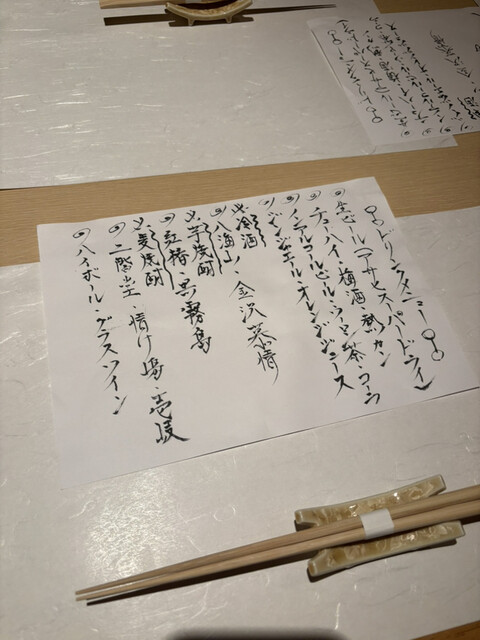 ドリンクメニュー
◎生ビール(アサヒスーパードライ)
◎チューハイ・梅酒・熱カン
◎ノンアルコールビール・ウーロン茶・コーラ
◎ジンジャエール・オレンジジュース
※冷酒
◎八海山・金沢慕情
※芋焼酎
◎・黒霧島
※麦焼酎
◎二階堂・情け嶋・壱岐
◎ハイボール・グラスワイン